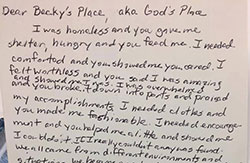 Dear Becky's Place, aka God's Place
I was homeless and you gave me
shelter, hungry and you feed me. I needed
comforted and you showed me you cared. I
felt worthless and you said I was amazing
and showed me it. I was overwhelmed
and you broke it down into parts and praised
my accomplishments. I needed clothes and
you made me fashionable. I needed encourage
ment and you helped me all the and showed me
I could do it. I really couldn't any was found
we all came from different environments and